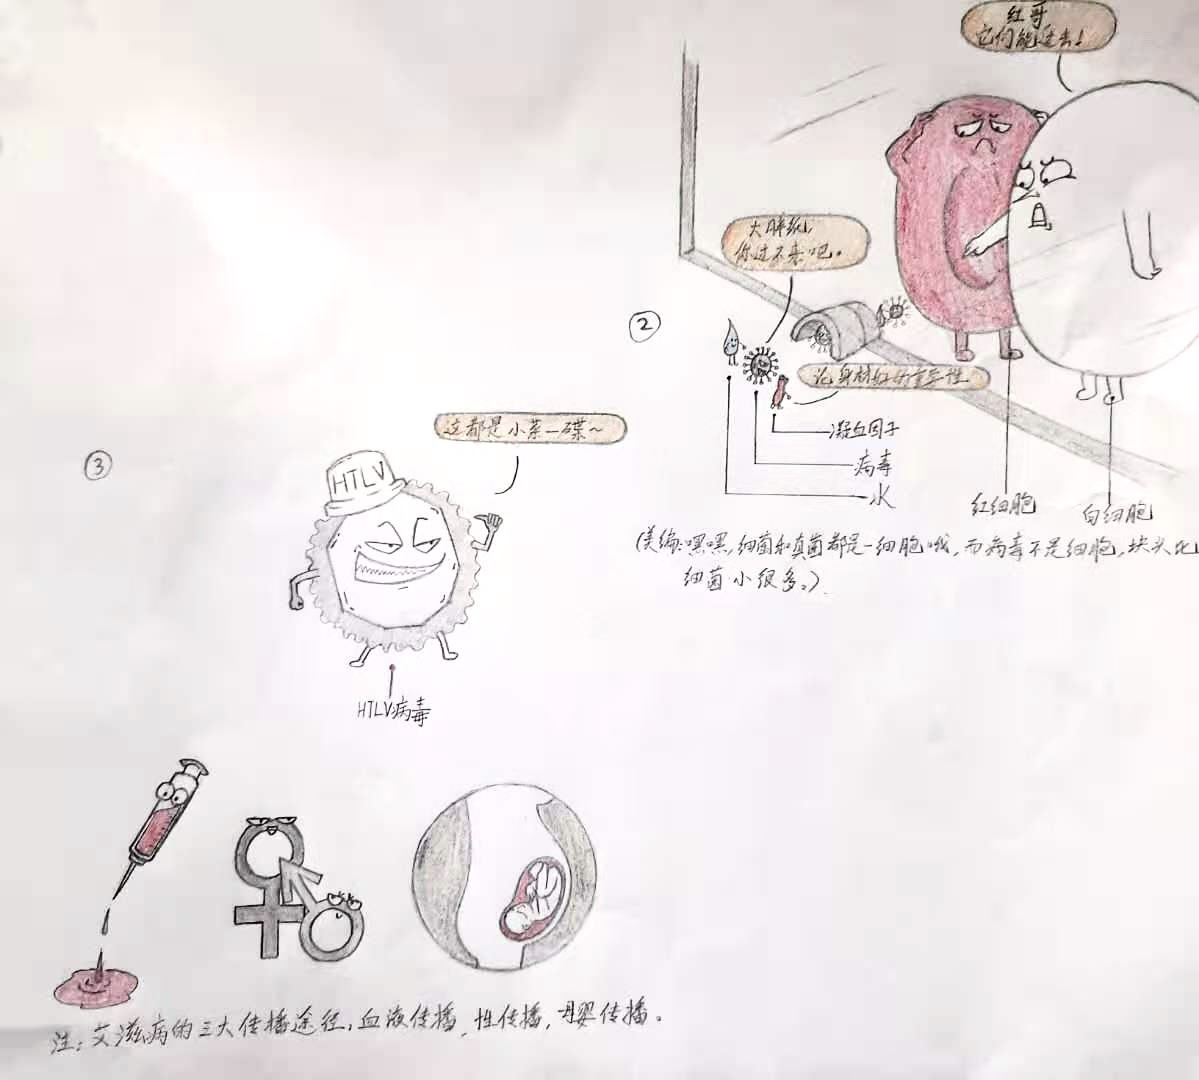 红哥
它们能过去!
大胖纸,
你过不来吧。
②
论身材好的重要性
凝血因子
病毒
水
红细胞
白细胞
(美编:嘿嘿,细菌和真菌都是一细胞哦,而病毒不是细胞,块头比
细菌小很多。)
③
这都是小菜一碟~
HTLV
HTLV病毒
注:艾滋病的三大传播途径,血液传播,性传播,母婴传播。